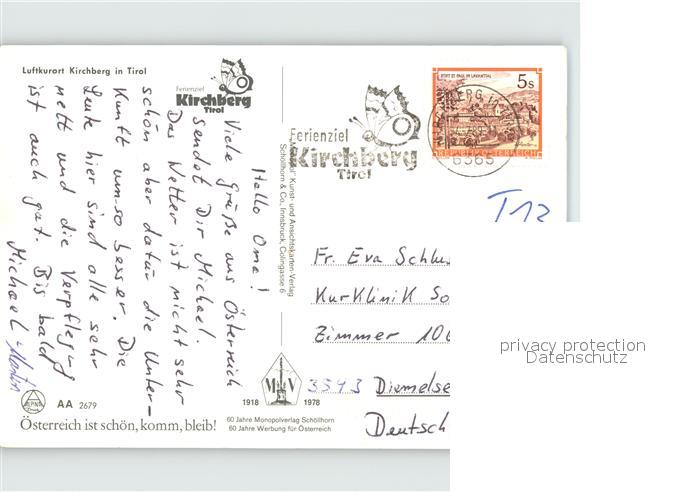 Luftkurort Kirchberg in Tirol
Ferienziel
Kirchberg
Tirol
Hello Oma!
Viele Grüße aus Österreich
sendet Dir Michael.
Das Wetter ist nicht sehr
schön aber dafür die Unter-
kunft um so besser. Die
Leute hier sind alle sehr
nett und die Verpflegung
ist auch gut. Bis bald
Michael
AA 2679
Österreich ist schön, komm, bleib!
"Monopol" Kunst- und Ansichtskarten-Verlag
Schöllhorn & Co., Innsbruck, Colingasse 6
Ferienziel
Kirchberg
Tirol
STIFT ST. PAUL IM LAVANTTAL
5s
REPUBLIK ÖSTERREICH
6365
T12
Fr. Eva Schlu
Kurklinik So
Zimmer 106
3543 Diemelse
Deutsch
M V
1918 1978
60 Jahre Monopolverlag Schöllhorn
60 Jahre Werbung für Österreich
privacy protection
Datenschutz